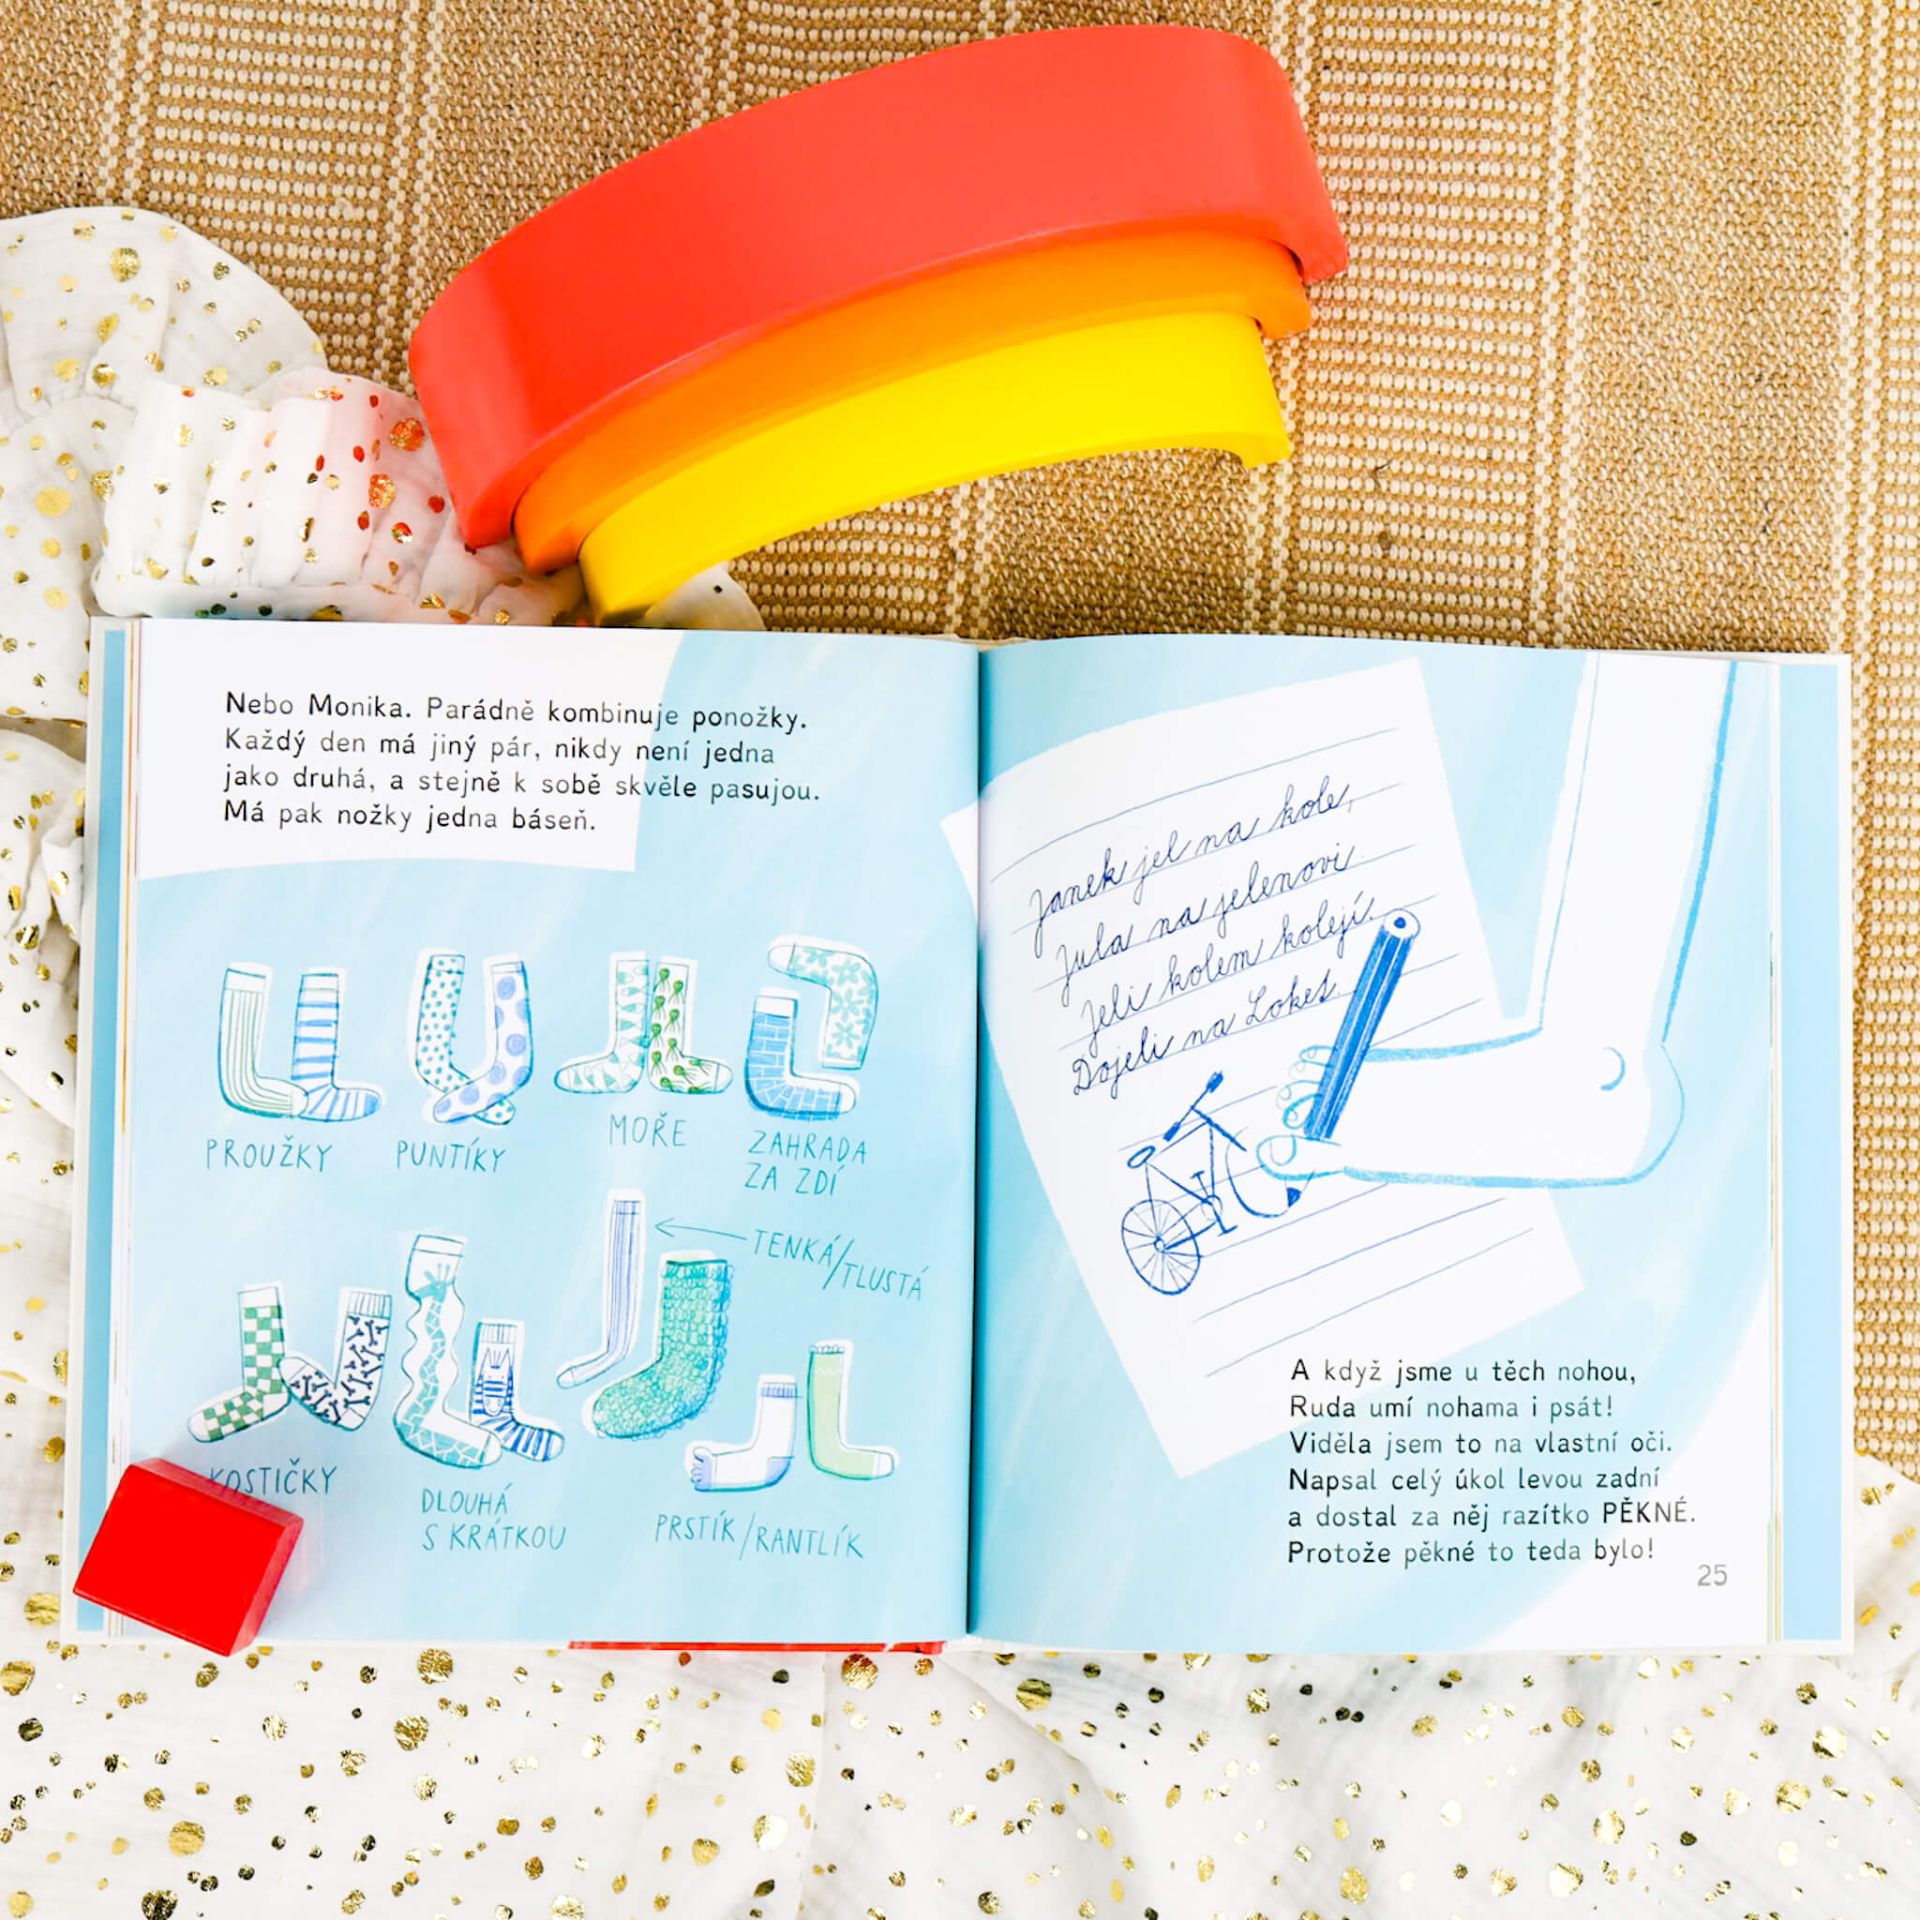 Nebo Monika. Parádně kombinuje ponožky.
Každý den má jiný pár, nikdy není jedna
jako druhá, a stejně k sobě skvěle pasujou.
Má pak nožky jedna báseň.
PROUŽKY
PUNTÍKY
MOŘE
ZAHRADA
ZA ZDÍ
TENKÁ/
TLUSTÁ
KOSTIČKY
DLOUHÁ
S KRÁTKOU
PRSTÍK/RANTLÍK
Janek jel na kole,
Jula na jelenovi.
Jeli kolem kolejí.
Dojeli na Loket.
A když jsme u těch nohou,
Ruda umí nohama i psát!
Viděla jsem to na vlastní oči.
Napsal celý úkol levou zadní
a dostal za něj razítko PĚKNÉ.
Protože pěkné to teda bylo!
25